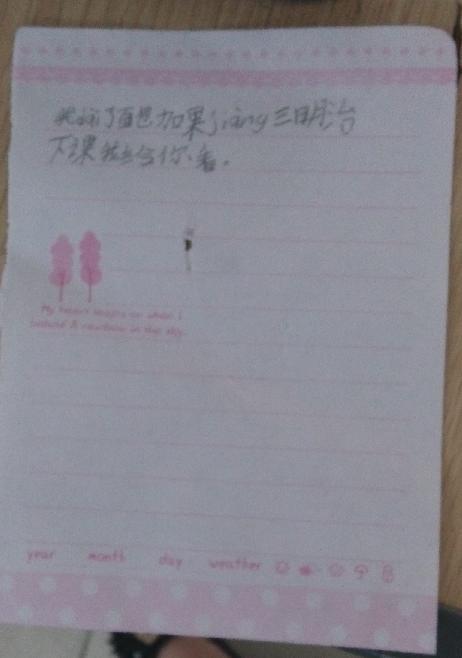 我了面包加果jiang三明治
下课我会给你看。
My heart leaps up when I
behold A rainbow in the sky.
year month day weather